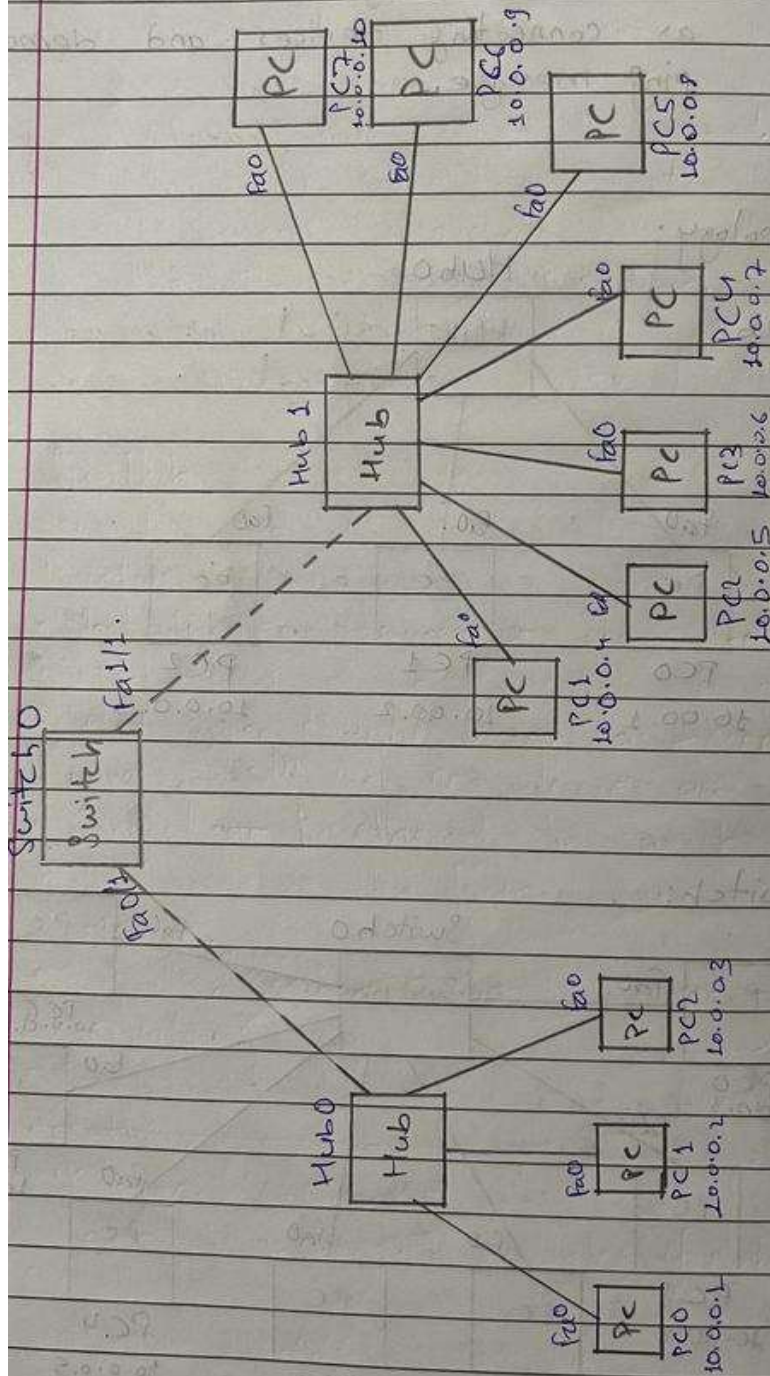 Switch0
Switch
Fa0/1
Fa1/1.
Hub0
Hub
Fa0
PC
PC0
10.0.0.1
Fa0
PC
PC1
10.0.0.2
Fa0
PC
PC2
10.0.0.3
Hub 1
Hub
Fa0
PC
PC1
10.0.0.4
Fa
PC
PC2
10.0.0.5
Fa0
PC
PC3
10.0.0.6
Fa0
PC
PC4
10.0.0.7
Fa0
PC
PC5
10.0.0.8
Fa0
PC
PC6
10.0.0.9
Fa0
PC
PC7
10.0.0.10